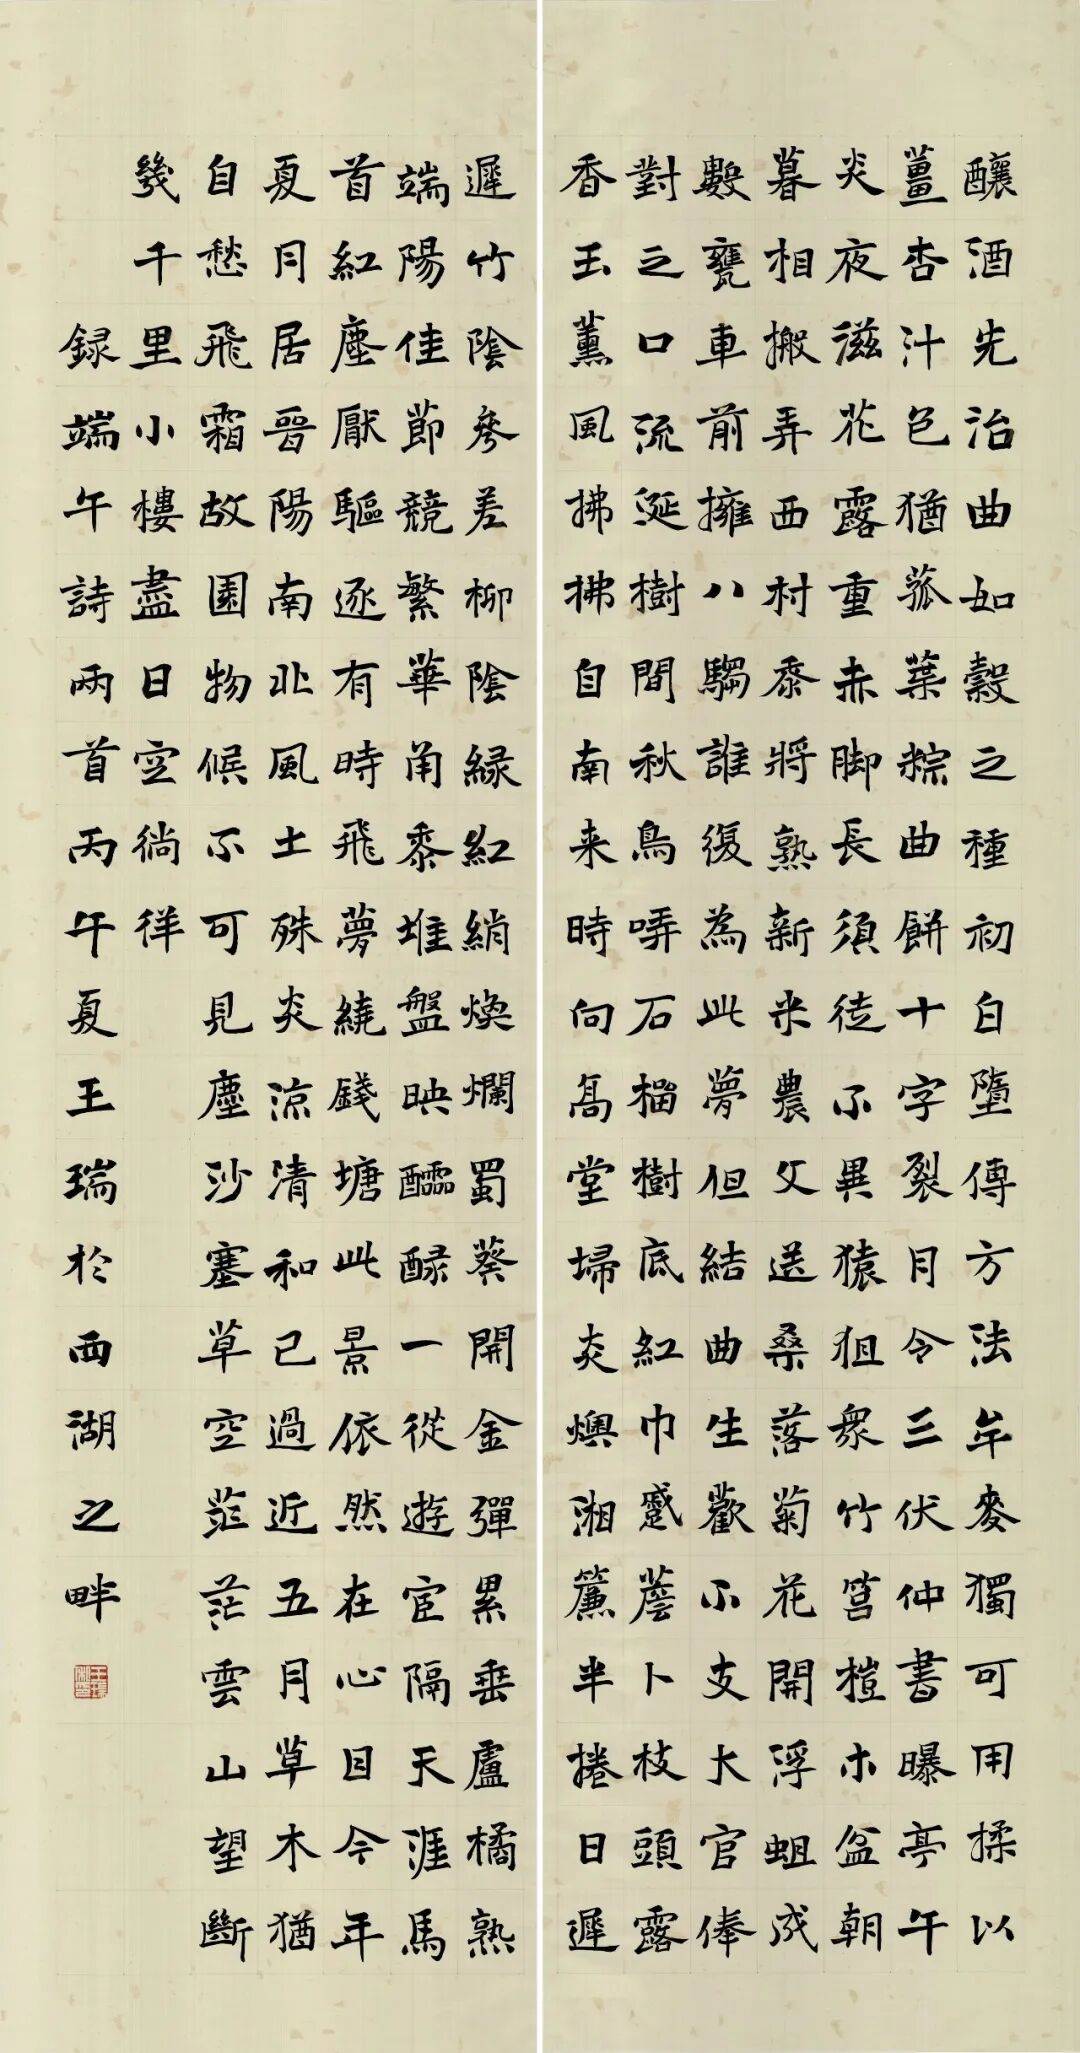 釀酒先治曲如穀之種初自墮傳方法牟麥獨可用揉以
薑杏汁色猶菰葉粽曲餅十字裂月令三伏仲書曝亭午
炎夜滋花露重赤脚長須徒不異猿狙衆竹筥榿木盆朝
暮相搬弄西村黍將熟新米農父送桑落菊花開浮蛆成
數甕車前擁八騶誰復為此夢但結曲生歡不支大官俸
對之口流涎樹間秋鳥哢石榴樹底紅巾蹙薝卜枝頭露
香玉薰風拂拂自南来時向高堂埽炎燠湘簾半捲日遲
遲竹陰參差柳陰緑紅綃煥爛蜀葵開金彈累垂盧橘熟
端陽佳節競繁華角黍堆盤映醽醁一從遊宦隔天涯馬
首紅塵厭驅逐有時飛夢繞錢塘此景依然在心目今年
夏月居晉陽南北風土殊炎涼清和已過近五月草木猶
自愁飛霜故園物候不可見塵沙塞草空茫茫雲山望斷
幾千里小樓盡日空徜徉
録端午詩兩首丙午夏王瑞於西湖之畔